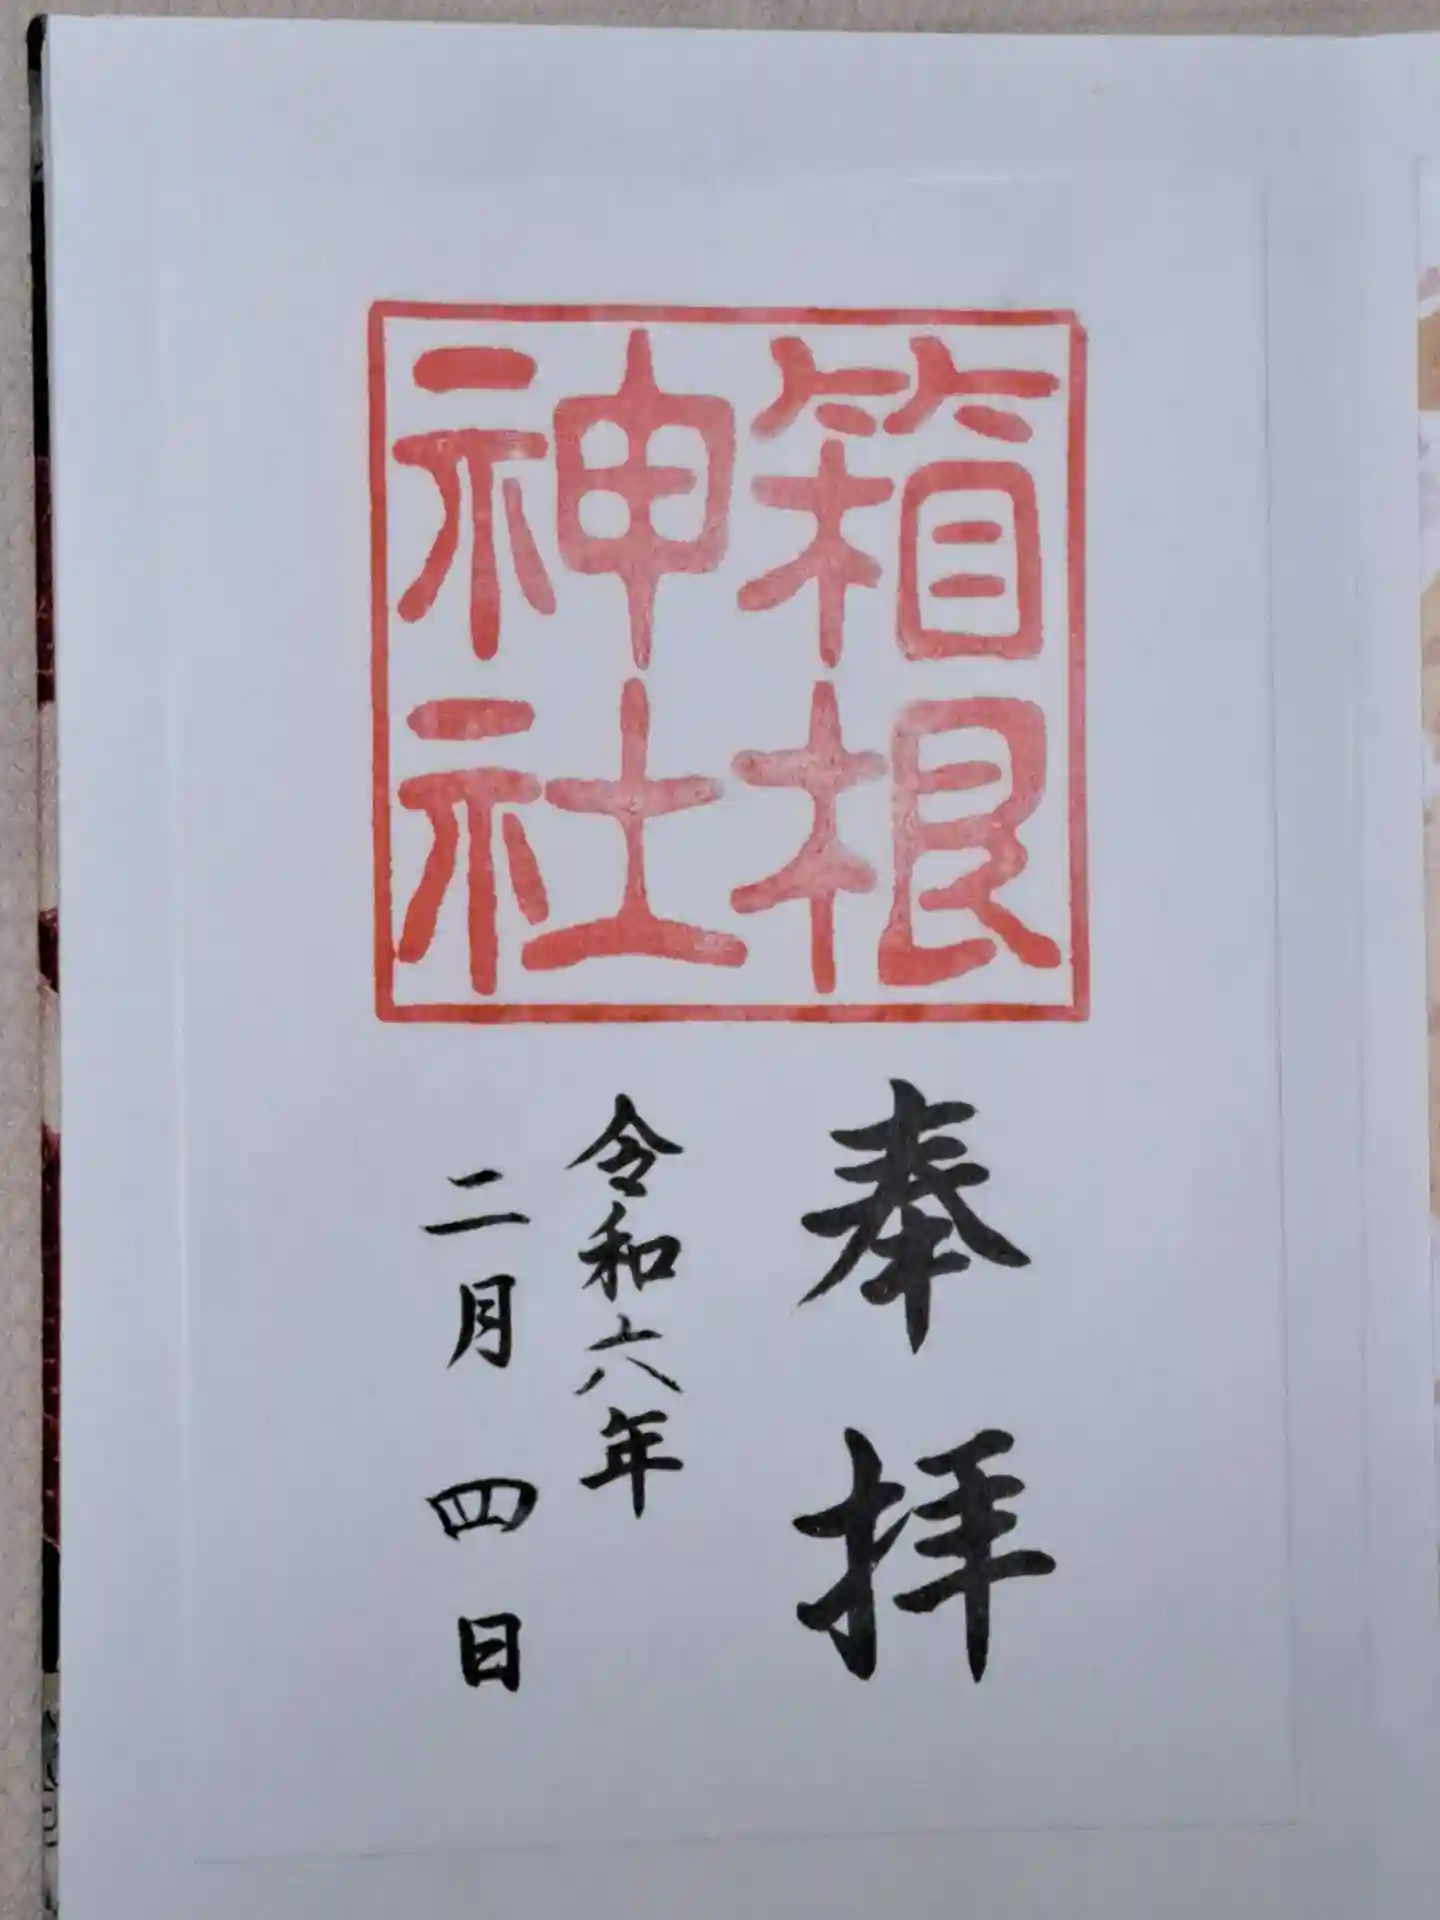 箱根
神社
奉拝
令和六年
二月四日